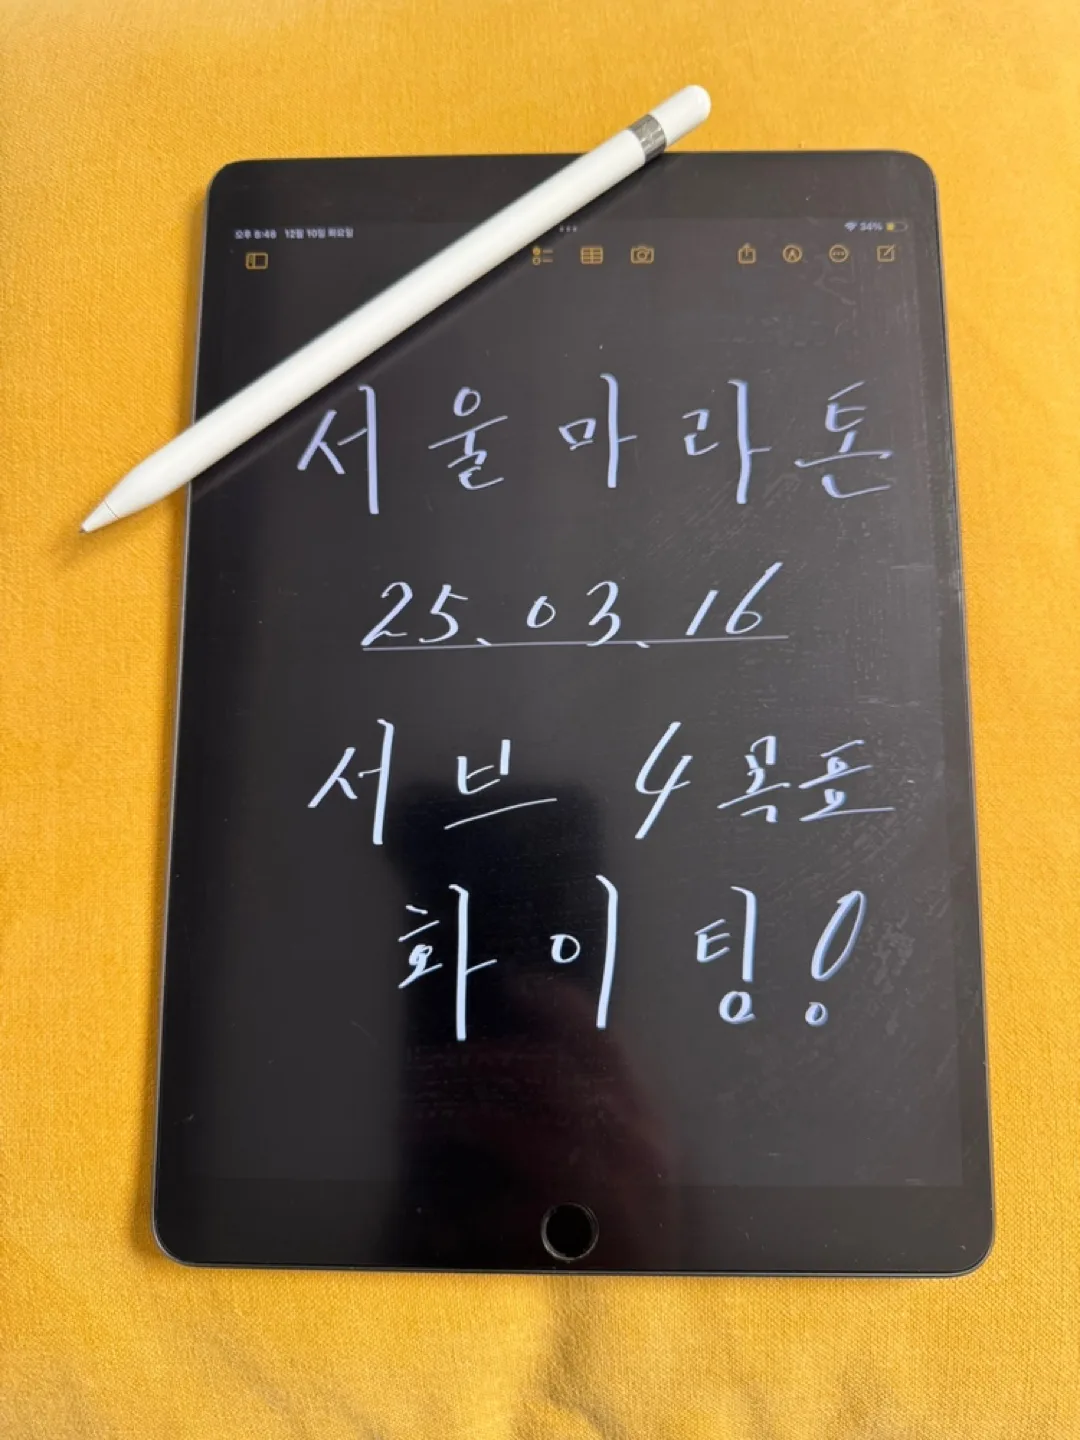 오후 8:46 12월 10일 화요일 34%
서울마라톤
25.03.16
서브 4 목표
화이팅!